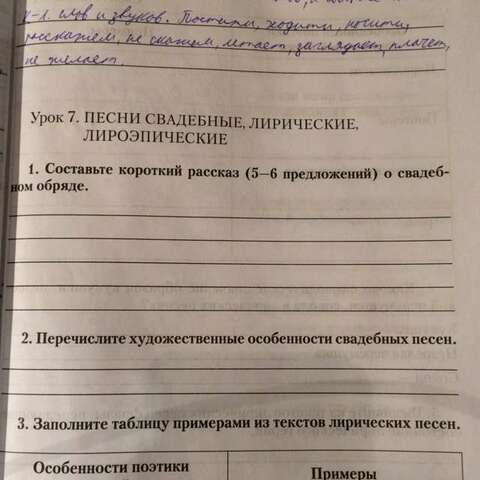 слов и звуков. Постыти, ходити, носити,
расскажем, не скажем, летает, заглядывает, плачет,
не желает.
Урок 7. ПЕСНИ СВАДЕБНЫЕ, ЛИРИЧЕСКИЕ,
ЛИРОЭПИЧЕСКИЕ
1. Составьте короткий рассказ (5–6 предложений) о свадеб-
ном обряде.
2. Перечислите художественные особенности свадебных песен.
3. Заполните таблицу примерами из текстов лирических песен.
Особенности поэтики
Примеры